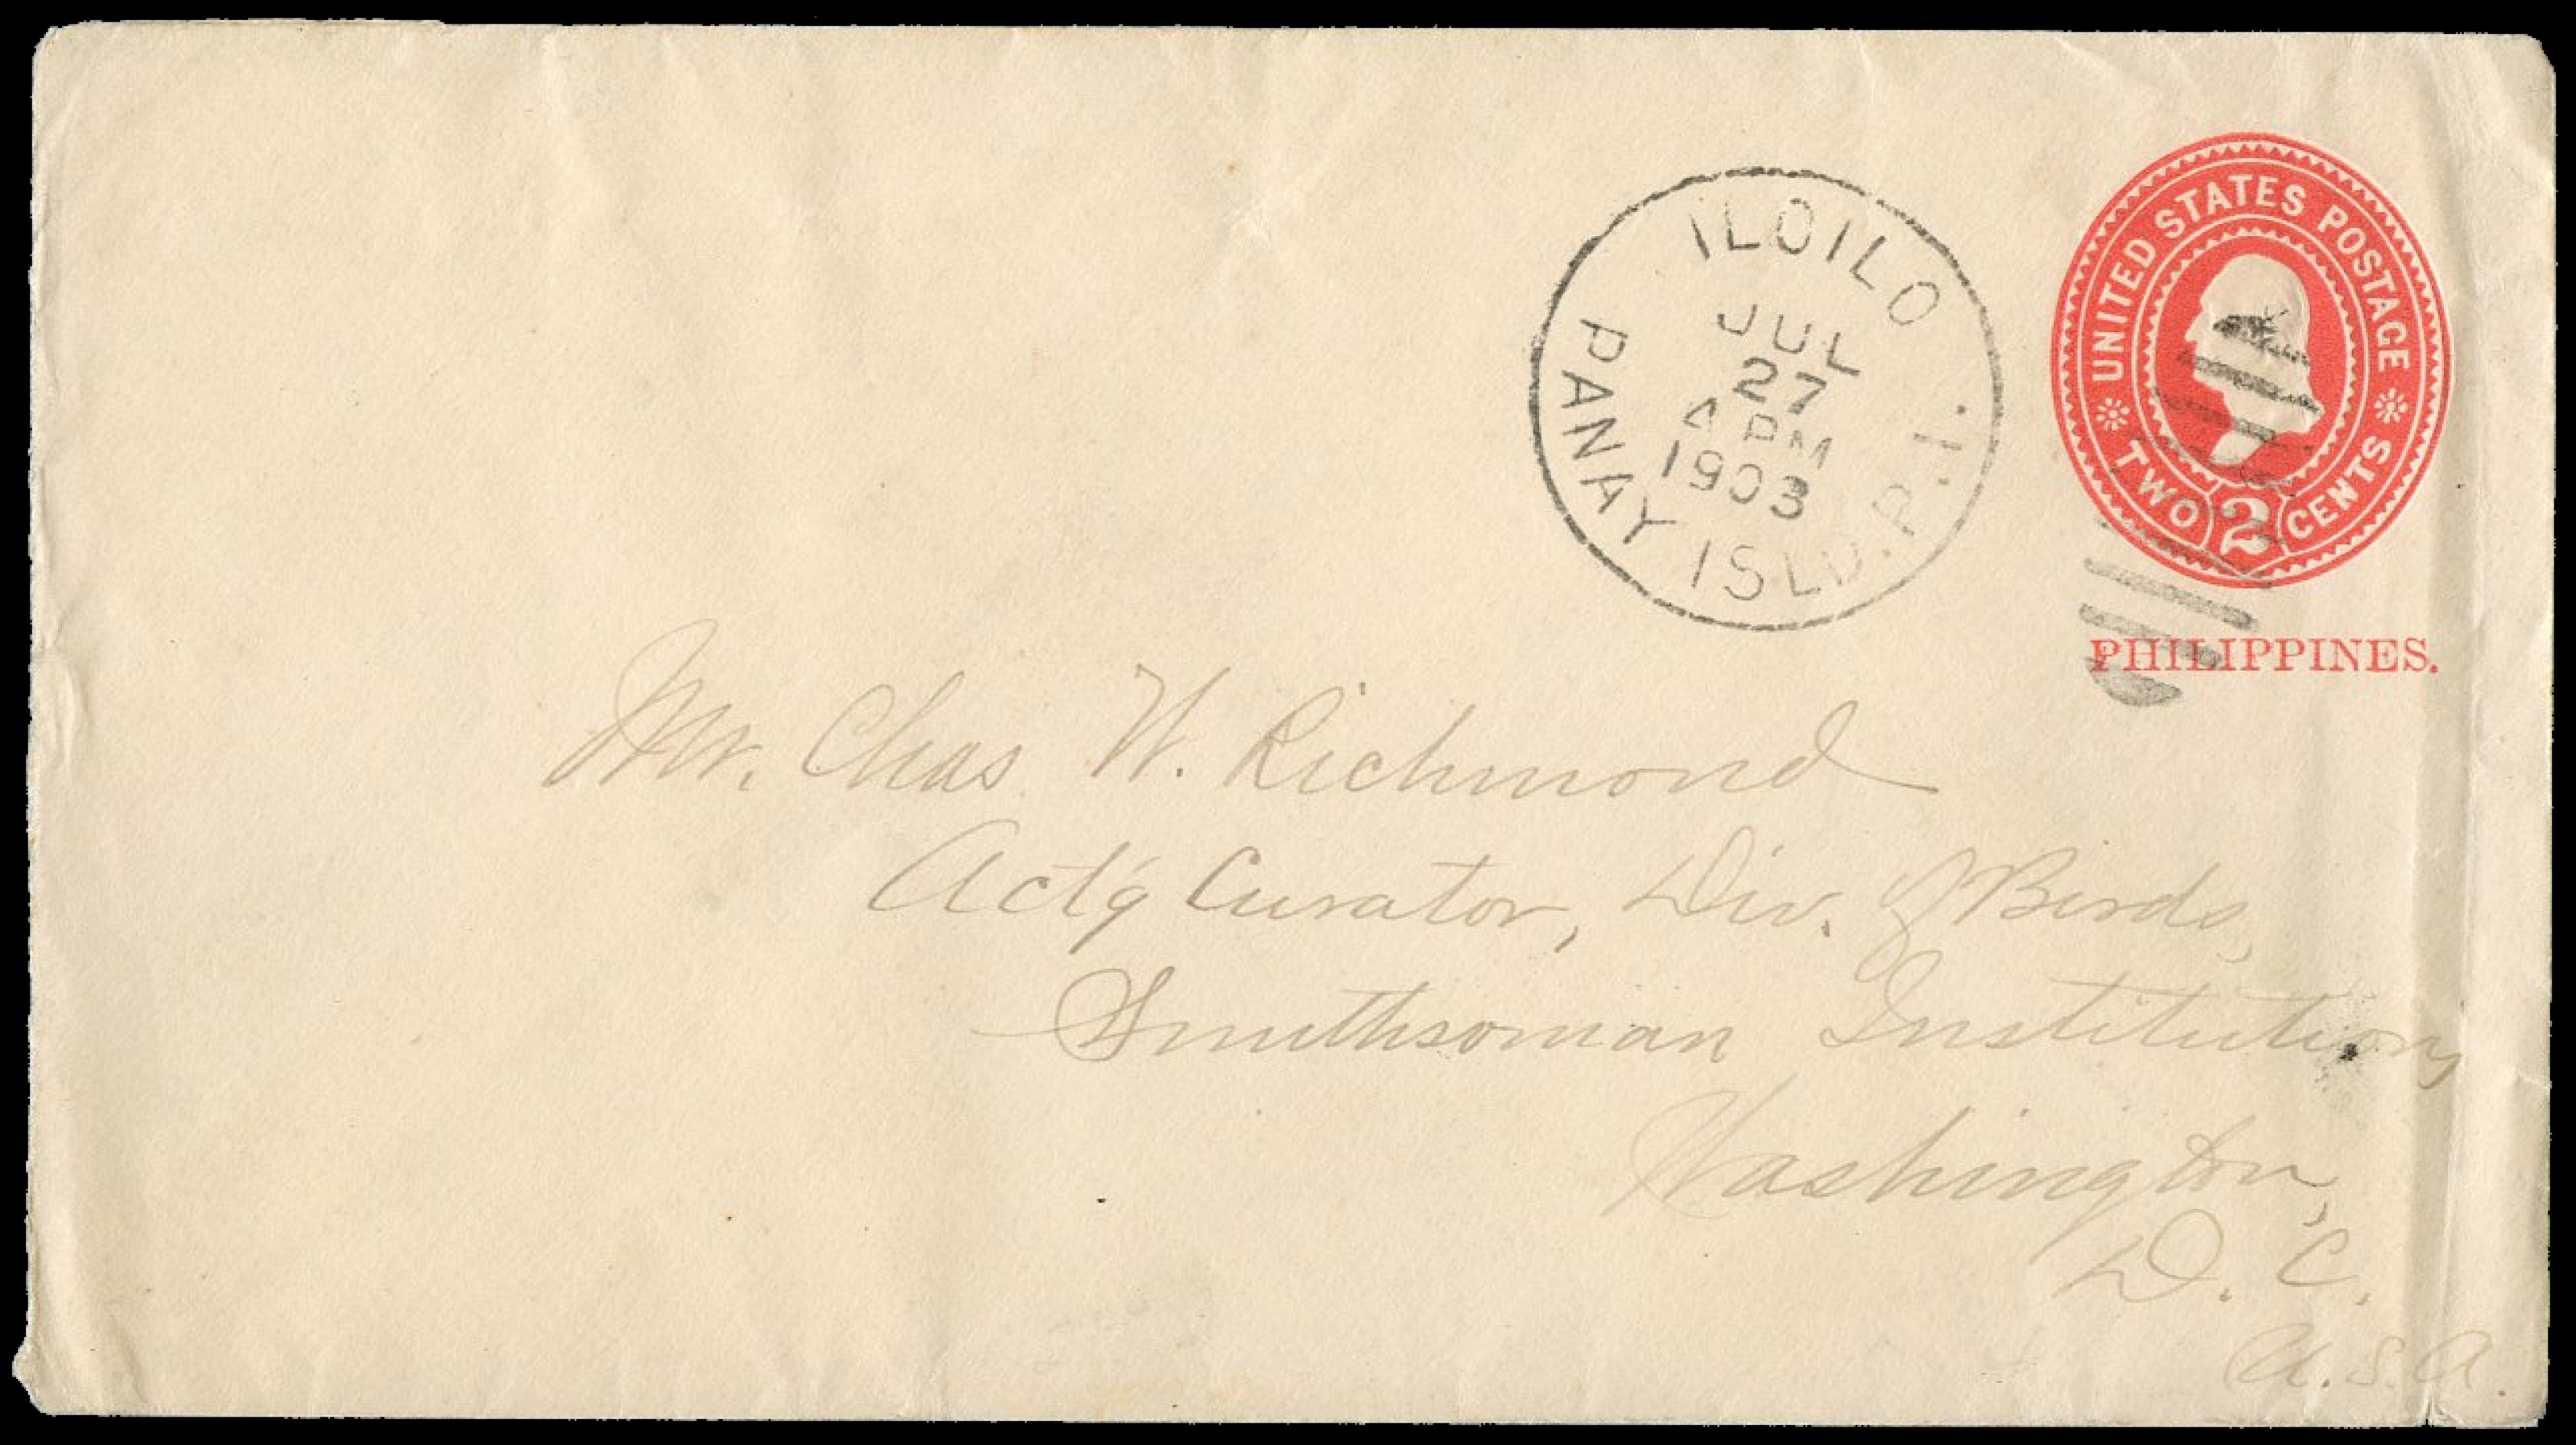 ILOILO
JUL
27
4 PM
1903
PANAY ISLD. P.I.
UNITED STATES POSTAGE
TWO 2 CENTS
PHILIPPINES.
Mr. Chas. W. Richmond
Act'g Curator, Div. of Birds,
Smithsonian Institution,
Washington,
D. C.
U.S.A.